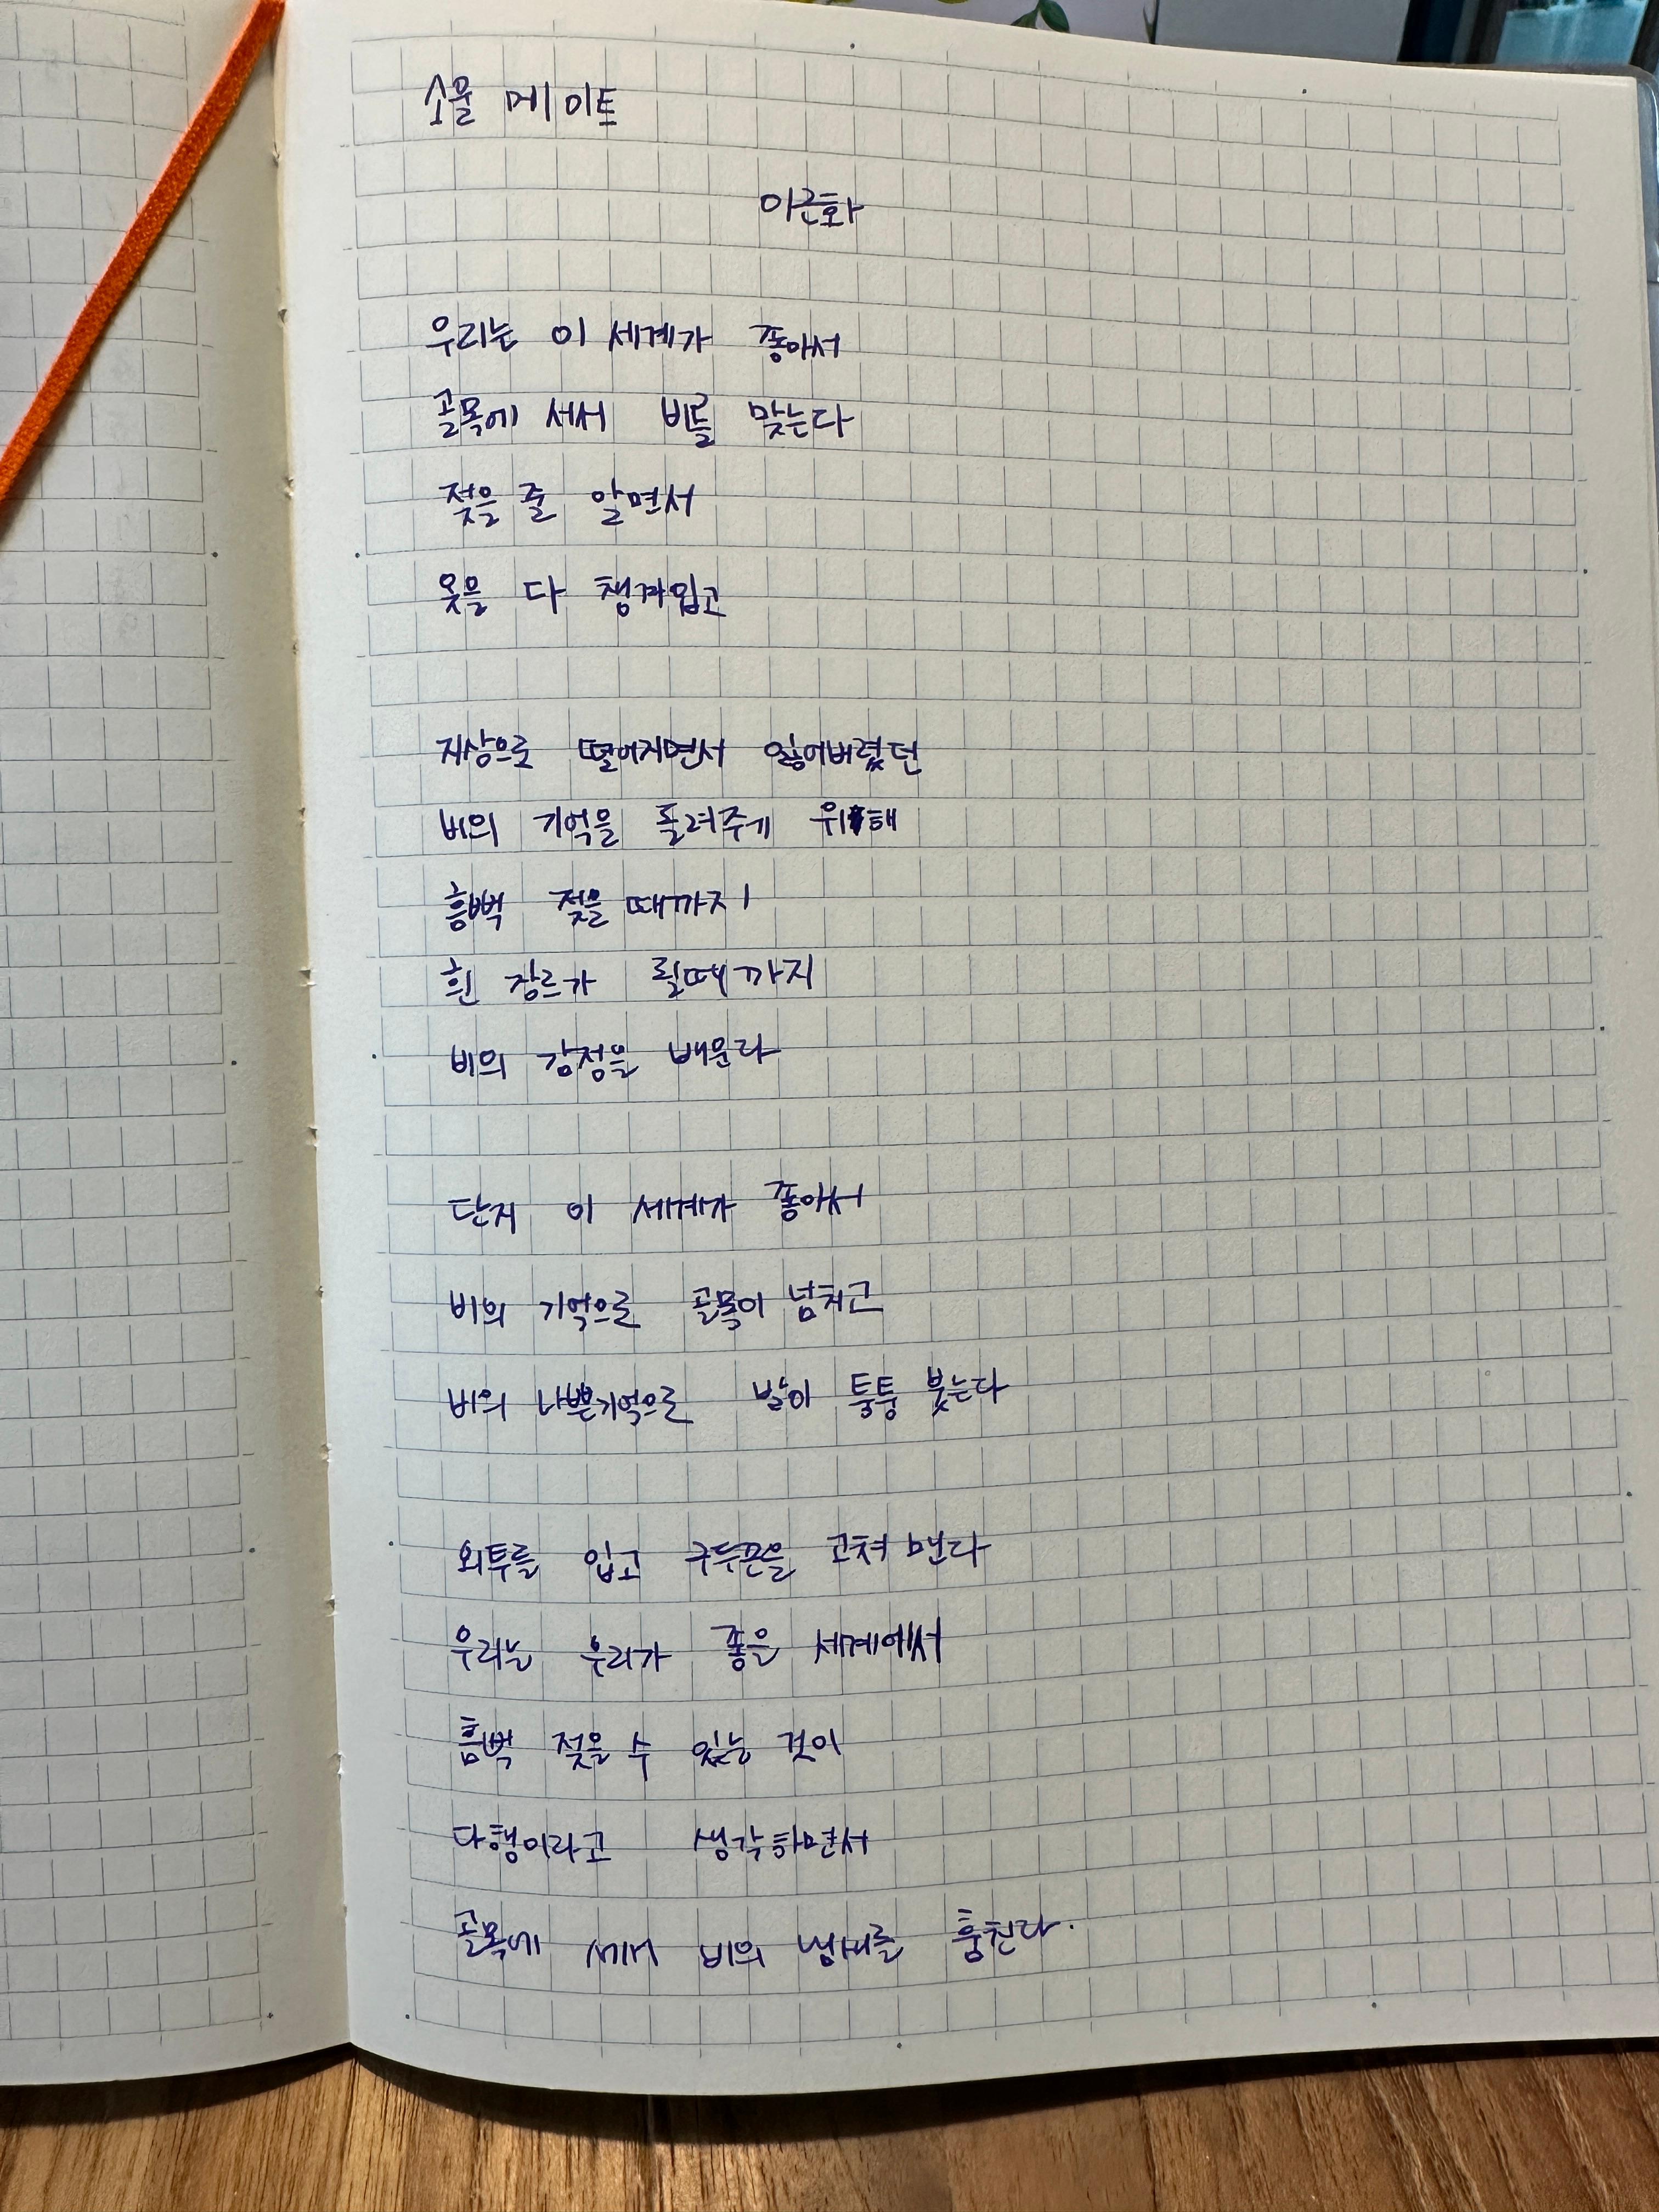 소울 메이트
이근화
우리는 이 세계가 좋아서
골목에 서서 비를 맞는다
젖을 줄 알면서
옷을 다 챙겨입고
지상으로 떨어지면서 잃어버렸던
비의 기억을 돌려주기 위해
흠뻑 젖을 때까지
흰 장르가 될때까지
비의 감정을 배운다
단지 이 세계가 좋아서
비의 기억으로 골목이 넘치고
비의 나쁜기억으로 발이 퉁퉁 붓는다
외투를 입고 구두끈을 고쳐 맨다
우리는 우리가 좋은 세계에서
흠뻑 젖을 수 있는 것이
다행이라고 생각하면서
골목에 서서 비의 냄새를 훔친다.